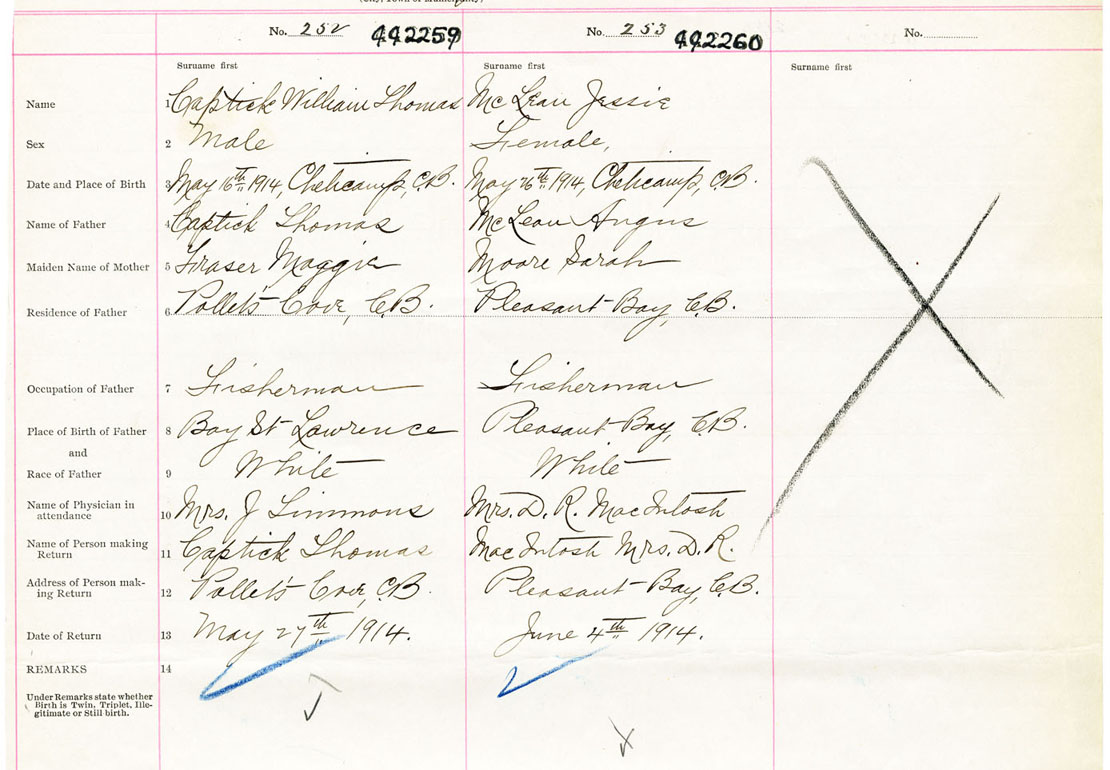 (City, Town or Municipality)
No. 252 442259 No. 253 442260 No.
Surname first Surname first Surname first
Name 1 Captick William Thomas McLean Jessie
Sex 2 Male Female,
Date and Place of Birth 3 May 16th 1914, Cheticamp, C.B. May 26th 1914, Cheticamp, C.B.
Name of Father 4 Captick Thomas McLean Angus
Maiden Name of Mother 5 Fraser Maggie Moore Sarah
Residence of Father 6 Pollet's Cove, C.B. Pleasant Bay, C.B.
Occupation of Father 7 Fisherman Fisherman
Place of Birth of Father 8 Bay St Lawrence Pleasant Bay, C.B.
and
Race of Father 9 White White
Name of Physician in
attendance 10 Mrs. J Simmons Mrs. D. R. MacIntosh
Name of Person making
Return 11 Captick Thomas MacIntosh Mrs. D. R.
Address of Person mak-
ing Return 12 Pollet's Cove, C.B. Pleasant Bay, C.B.
Date of Return 13 May 27th 1914. June 4th 1914.
REMARKS 14
Under Remarks state whether
Birth is Twin, Triplet, Ille-
gitimate or Still birth.